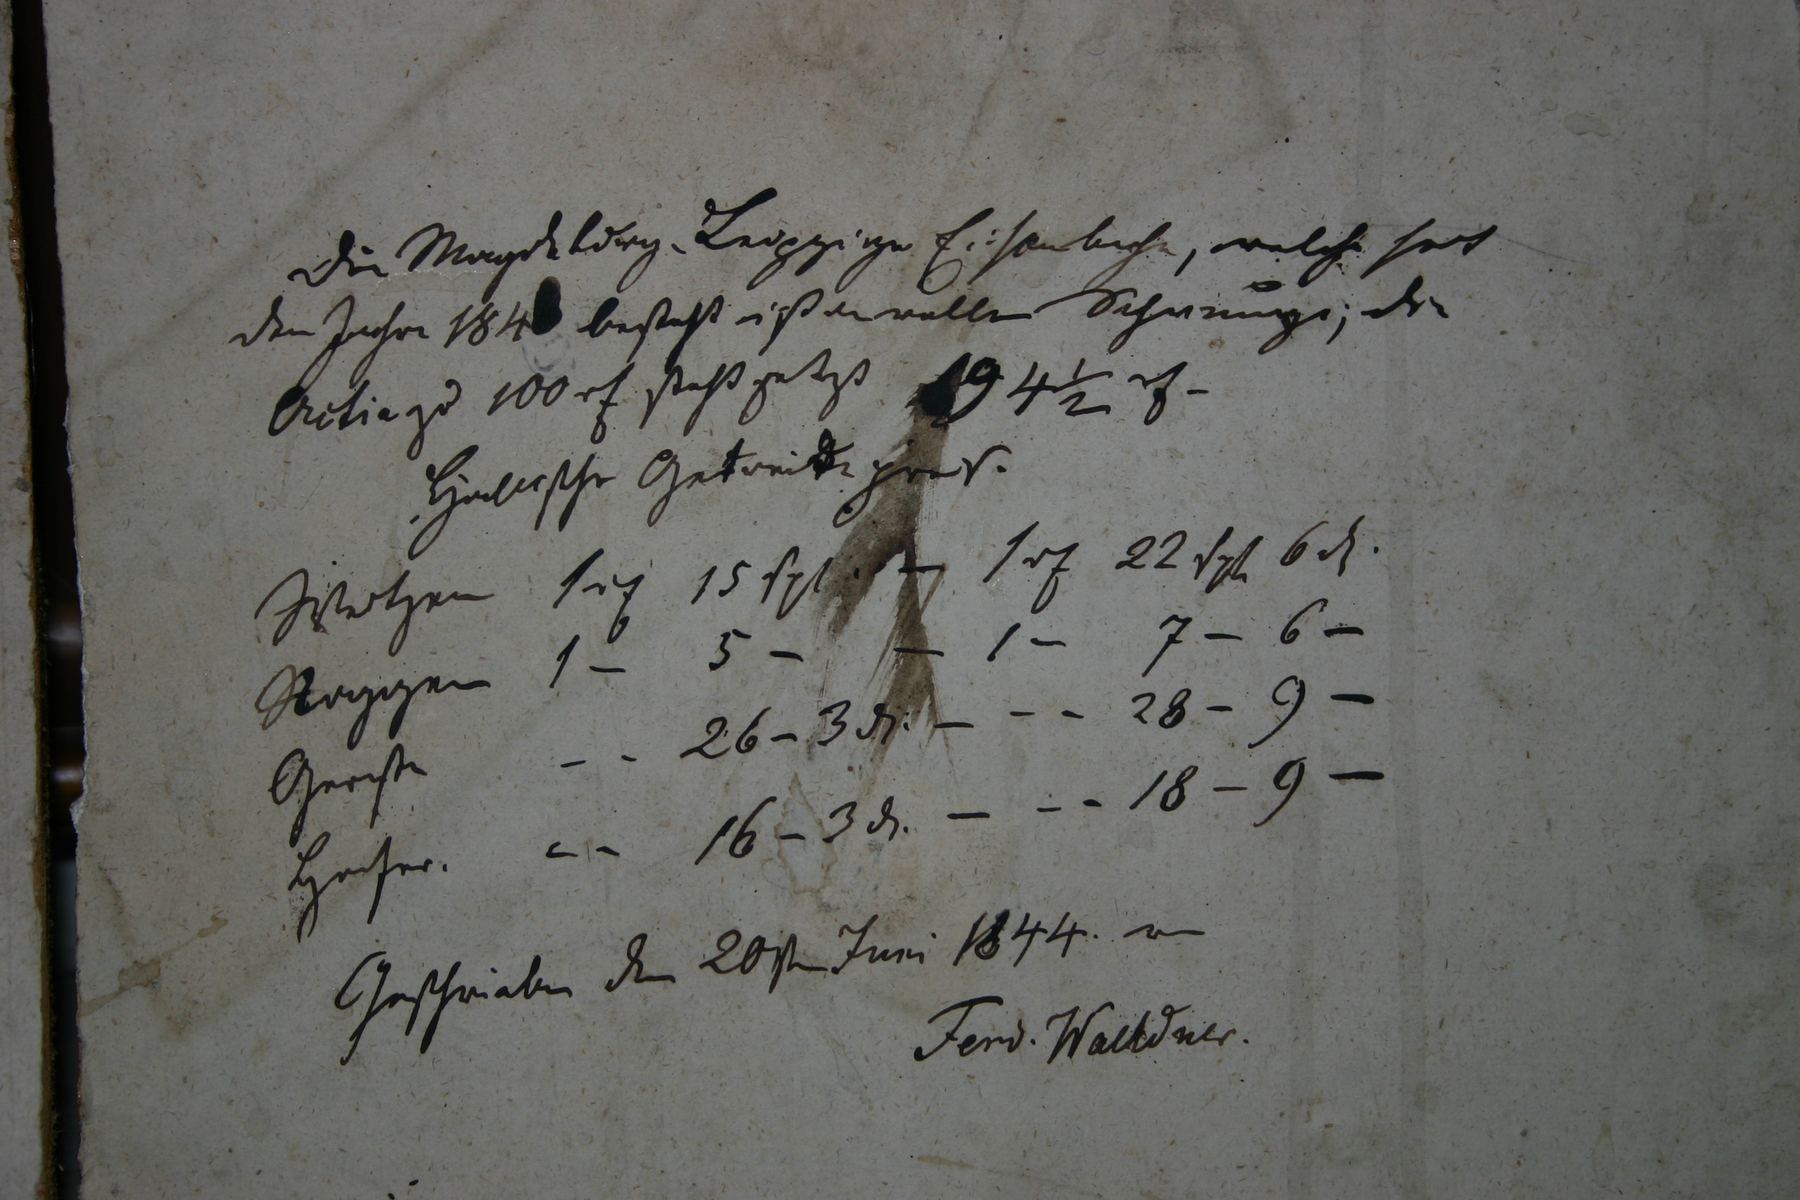 Die Magdeburg-Leipziger Eisenbahn, welche seit
dem Jahre 184 besteht ist im vollen Schwunge; die
Actie zu 100 rf steht jetzt 194 1/2 rf -
Hallische Getreide preise.
Weitzen 1 rf 15 sgl. — 1 rf 22 sgl 6 d.
Roggen 1 – 5 – — 1 – 7 – 6 –
Gerste – – 26 – 3 d. — – – 28 – 9 –
Hafer. – – 16 – 3 d. — – – 18 – 9 –
Geschrieben den 20sten Juni 1844. v
Ferd. Walldner.